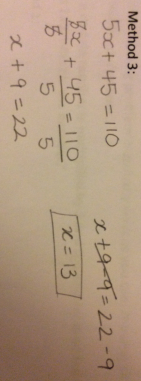 Method 3:
5x + 45 = 110
5x/5 + 45/5 = 110/5
x + 9 = 22
x + 9 - 9 = 22 - 9
x = 13